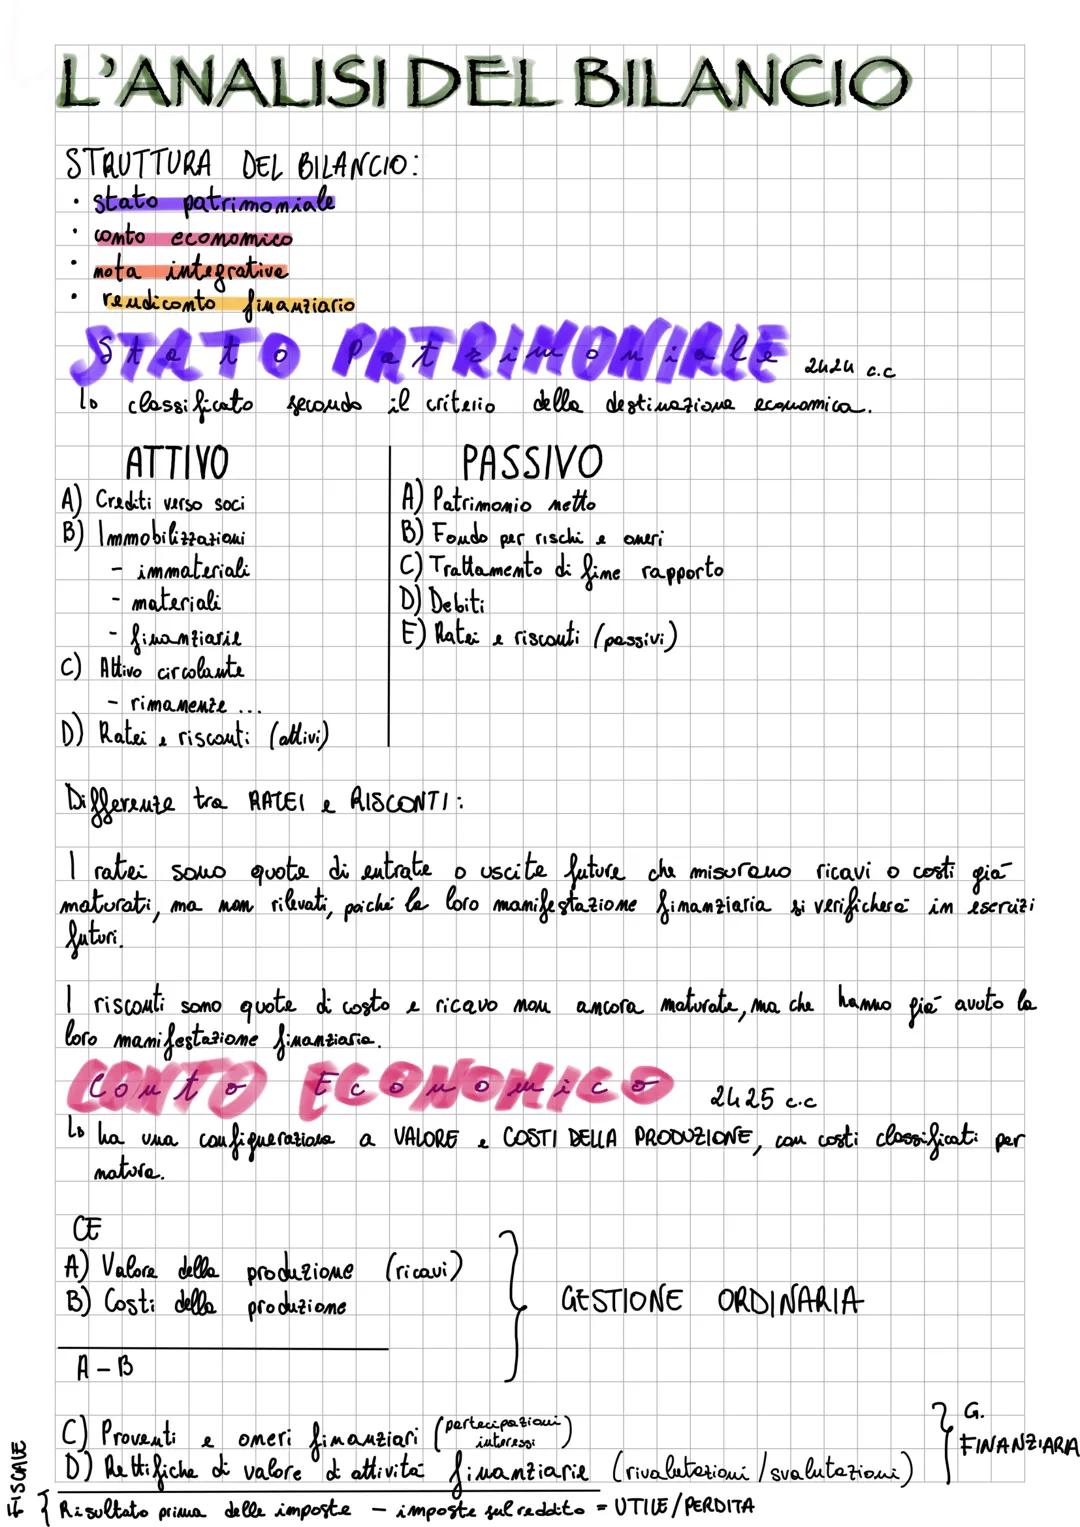 L'ANALISI DEL BILANCIO
STRUTTURA DEL BILANCIO:
• stato patrimoniale
• conto economico
• nota integrativa
• rendiconto finanziario
STATO PATRIMONIALE 2424 c.c
↳ classificato secondo il criterio della destinazione economica.
ATTIVO
A) Crediti verso soci
B) Immobilizzazioni
- immateriali
- materiali
- finanziarie
C) Attivo circolante
- rimanenze ...
D) Ratei e risconti (attivi)
PASSIVO
A) Patrimonio netto
B) Fondo per rischi e oneri
C) Trattamento di fine rapporto
D) Debiti
E) Ratei e risconti (passivi)
Differenze tra RATEI e RISCONTI:
I ratei sono quote di entrate o uscite future che misurano ricavi o costi già
maturati, ma non rilevati, poiché la loro manifestazione finanziaria si verificherà in esercizi
futuri.
I risconti sono quote di costo e ricavo non ancora maturate, ma che hanno già avuto la
loro manifestazione finanziaria.
CONTO ECONOMICO 2425 c.c
↳ ha una configurazione a VALORE e COSTI DELLA PRODUZIONE, con costi classificati per
natura.
CE
A) Valore della produzione (ricavi)
B) Costi della produzione
A - B
GESTIONE ORDINARIA
C) Proventi e oneri finanziari (partecipazioni interessi)
D) Rettifiche di valore di attività finanziarie (rivalutazioni / svalutazioni)
G. FINANZIARIA
Risultato prima delle imposte - imposte sul reddito = UTILE/PERDITA
FISCALE